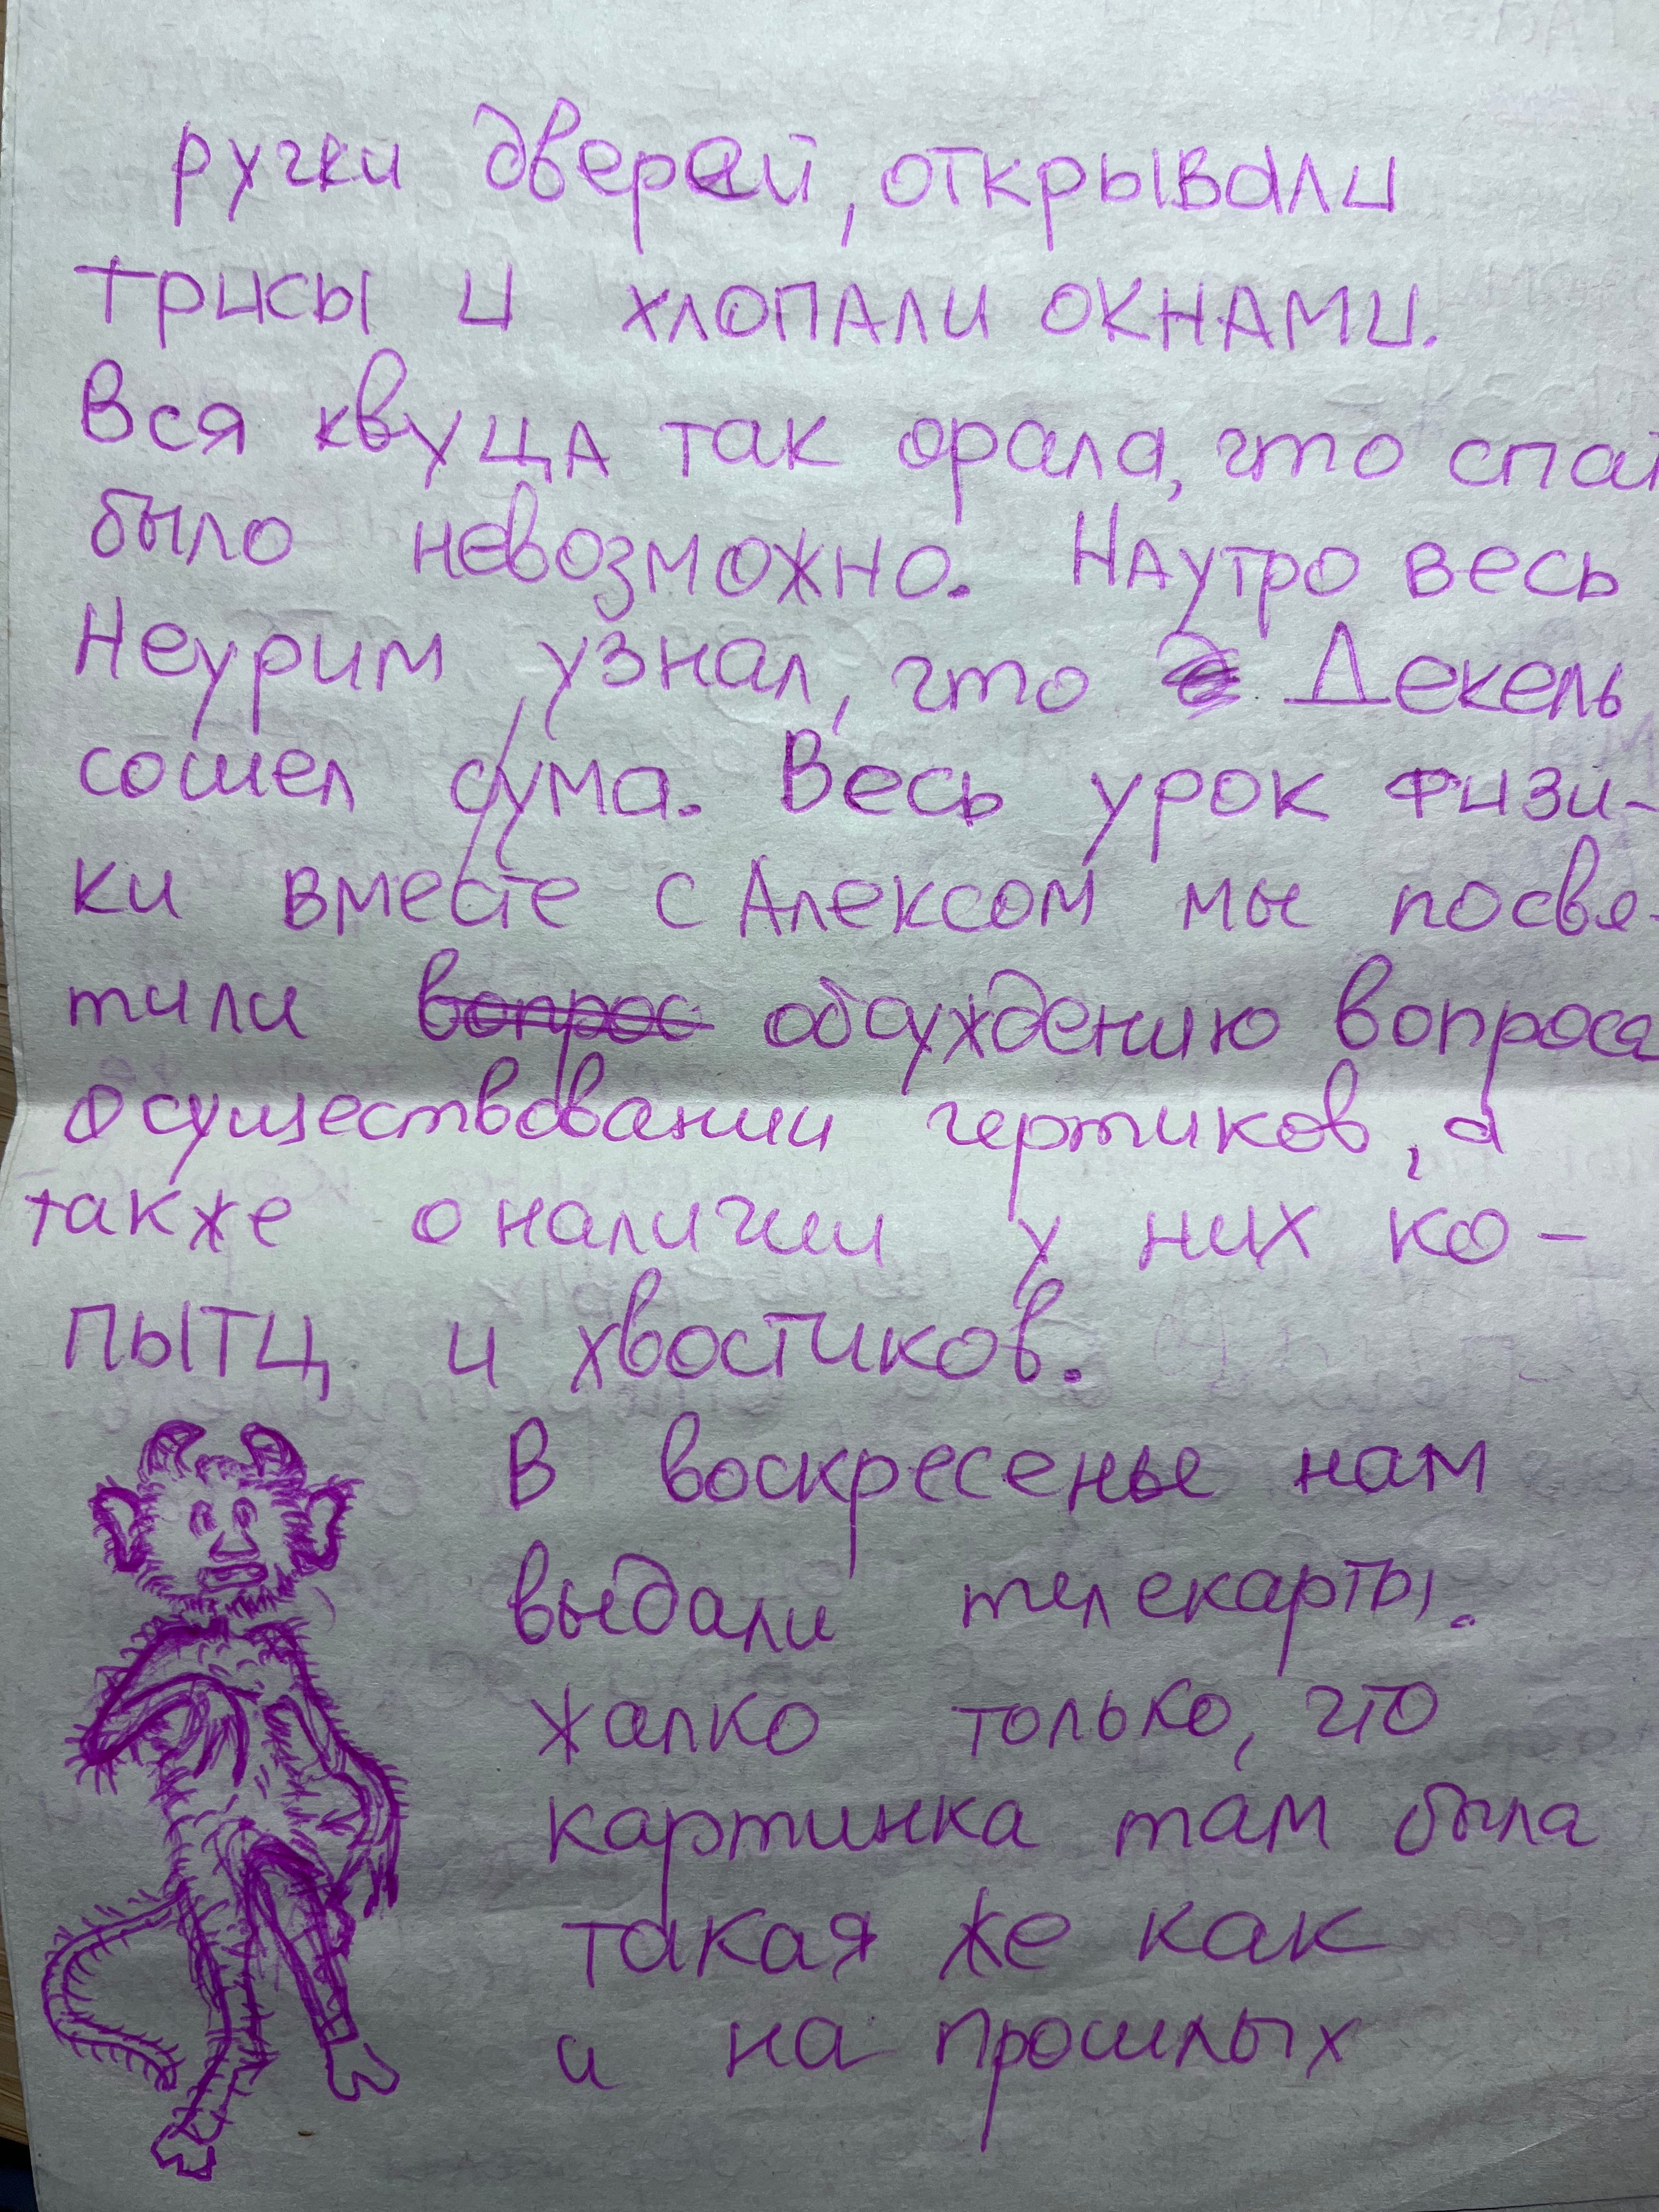 ручки дверей, открывали
трисы и хлопали окнами.
Вся квуца так орала, что спат
было невозможно. Наутро весь
Неурим узнал, что Декель
сошел с ума. Весь урок физи-
ки вместе с Алексом мы посвя-
тили вопрос обсуждению вопроса
о существовании чертиков, а
также о наличии у них ко-
пытц и хвостиков.
В воскресенье нам
выдали телекарты.
жалко только, что
картинка там была
такая же как
и на прошлых